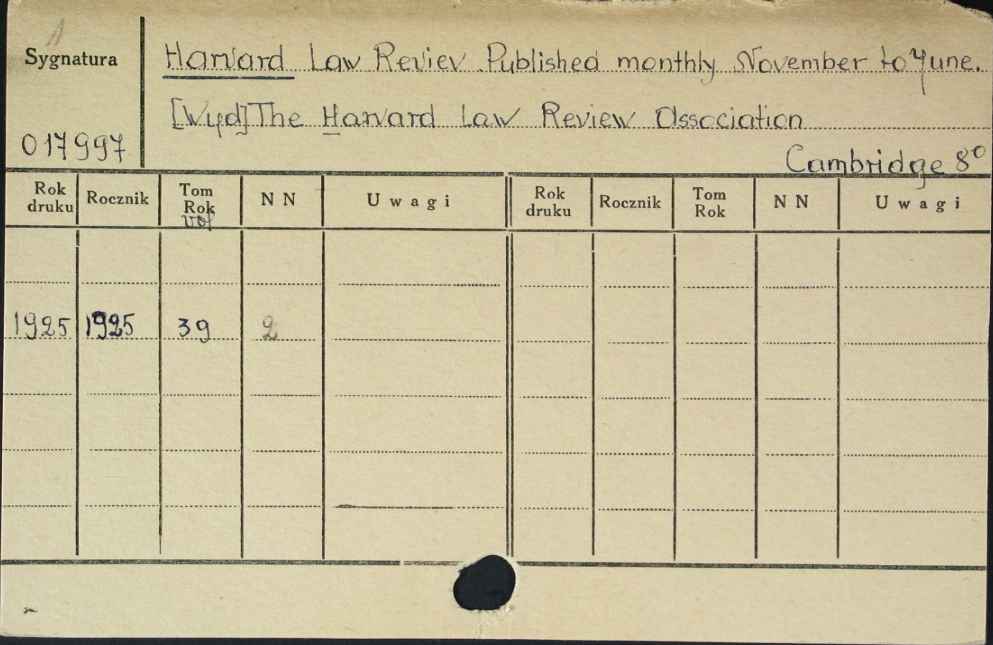 1
Sygnatura
Harvard Law Reviev Published monthly November to June.
[Wyd] The Harvard Law Review Association
017997
Cambridge 8°
Rok druku Rocznik Tom Rok vol NN Uwagi Rok druku Rocznik Tom Rok NN Uwagi
1925 1925 39 2